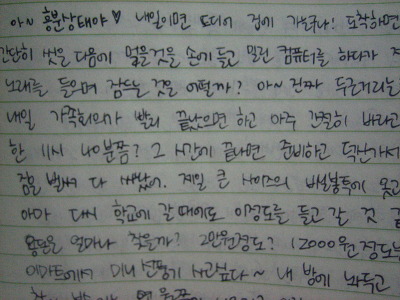 아~ 흥분상태야♥ 내일이면 드디어 집에 가는구나! 도착하면
간단히 씻은 다음에 먹을것을 손에 들고 밀린 컴퓨터를 하다가
노래를 들으며 잠드는 것은 어떨까? 아~ 진짜 두근거리는
내일 가족회의가 빨리 끝났으면 하고 아주 간절히 바라고
한 11시 40분쯤? 그 시간에 끝나면 준비하고
짐을 벌써 다 쌌어. 제일 큰 사이즈의 비닐봉투에
아마 다시 학교에 갈 때에도 이정도를 들고 갈 것
용돈은 얼마나 찾을까? 2만원정도? 12000원정도
이마트에서 미니 선풍기 사고싶다~ 내 방에 놔두고